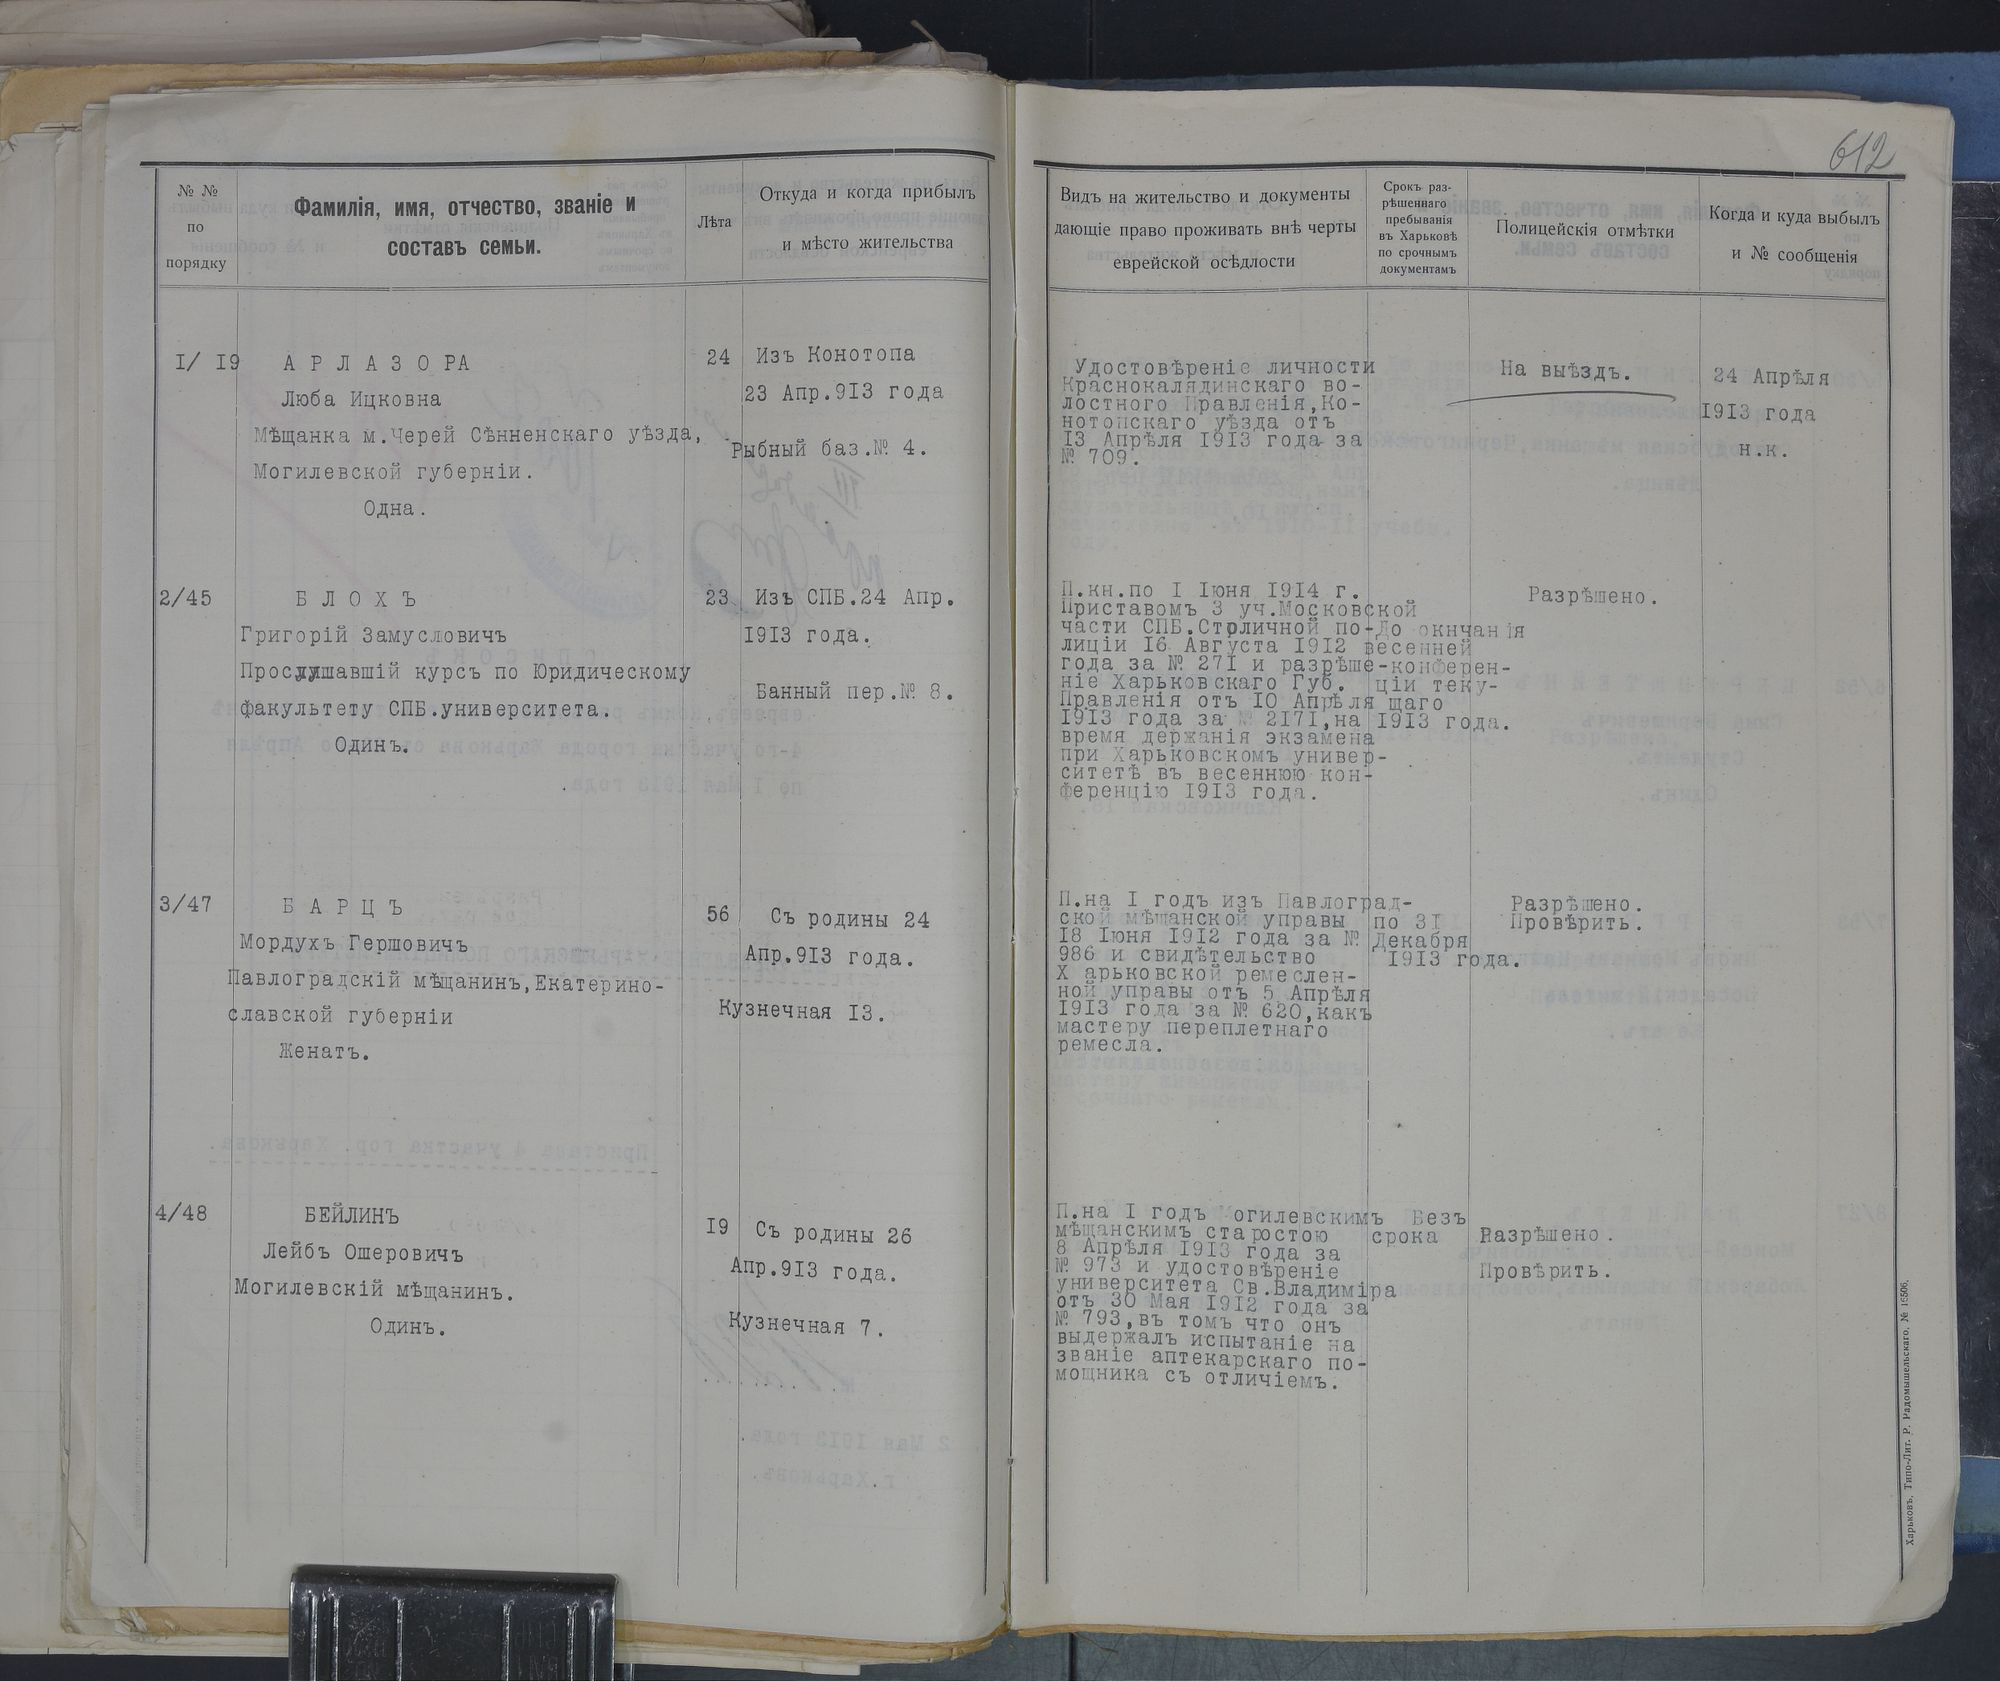 612
№ №
по
порядку
Фамилія, имя, отчество, званіе и
составъ семьи.
Лѣта
Откуда и когда прибылъ
и мѣсто жительства
Видъ на жительство и документы
дающіе право проживать внѣ черты
еврейской осѣдлости
Срокъ раз-
рѣшеннаго
пребыванія
въ Харьковѣ
по срочнымъ
документамъ
Полицейскія отмѣтки
Когда и куда выбылъ
и № сообщенія
I/ I9
А Р Л А З О РА
Люба Ицковна
Мѣщанка м.Черей Сѣнненскаго уѣзда,
Могилевской губерніи.
Одна.
24
Изъ Конотопа
23 Апр.913 года
Рыбный баз.№ 4.
Удостовѣреніе личности
Краснокалядинскаго во-
лостного Правленія,Ко-
нотопскаго уѣзда отъ
I3 Апрѣля I9I3 года за
№ 709.
На выѣздъ.
24 Апрѣля
I9I3 года
н.к.
2/45
Б Л О Х Ъ
Григорій Замусловичъ
Прослушавшій курсъ по Юридическому
факультету СПБ.университета.
Одинъ.
23
Изъ СПБ.24 Апр.
I9I3 года.
Банный пер.№ 8.
П.кн.по I Іюня I9I4 г.
Приставомъ 3 уч.Московской
части СПБ.Столичной по-
лиціи I6 Августа I9I2
года за № 27I и разрѣше-
ніе Харьковскаго Губ.
Правленія отъ I0 Апрѣля
I9I3 года за № 2I7I,на
время держанія экзамена
при Харьковскомъ универ-
ситетѣ въ весеннюю кон-
ференцію I9I3 года.
До окнчанія
весенней
конферен-
ціи теку-
щаго
I9I3 года.
Разрѣшено.
3/47
Б А Р Ц Ъ
Мордухъ Гершовичъ
Павлоградскій мѣщанинъ,Екатерино-
славской губерніи
Женатъ.
56
Съ родины 24
Апр.9I3 года.
Кузнечная I3.
П.на I годъ изъ Павлоград-
ской мѣщанской управы
I8 Іюня I9I2 года за №
986 и свидѣтельство
Х арьковской ремеслен-
ной управы отъ 5 Апрѣля
I9I3 года за № 620,какъ
мастеру переплетнаго
ремесла.
по 3I
Декабря
I9I3 года.
Разрѣшено.
Провѣрить.
4/48
БЕЙЛИНЪ
Лейбъ Ошеровичъ
Могилевскій мѣщанинъ.
Одинъ.
I9
Съ родины 26
Апр.9I3 года.
Кузнечная 7.
П.на I годъ огилевскимъ
мѣщанскимъ старостою
8 Апрѣля I9I3 года за
№ 973 и удостовѣреніе
университета Св.Владиміра
отъ 30 Мая I9I2 года за
№ 793,въ томъ что онъ
выдержалъ испытаніе на
званіе аптекарскаго по-
мощника съ отличіемъ.
Безъ
срока
Разрѣшено.
Провѣрить.
Харьковъ, Типо-Лит. Р. Радомышельскаго, № 16506.